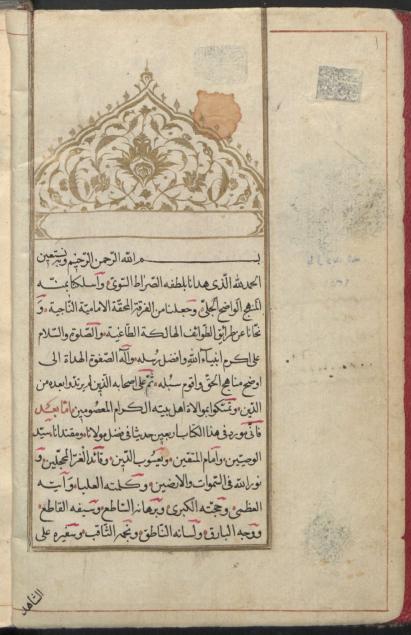 بسم الله الرحمن الرحيم وبه نستعين
الحمد لله الذي هدانا بلطفه الصراط السوي وأسلكنا بمنه
المنهج الواضح الجلي وجعلنا من الفرقة المحقة الامامية الناجية و
نجانا عن طرايق الطوائف الهالكة الطاغية والصلوة والسلام
على اكرم انبياء الله وافضل رسله وآله الصفوة الهداة الى
اوضح مناهج الحق واقوم سبله ثم على اصحابه الذين لم يرتدوا بعده من
الدين وتمسكوا بموالاة اهل بيته الكرام المعصومين اما بعد
فاني مورد في هذا الكتاب اربعين حديثا في فضل مولانا ومقتدانا سيد
الوصيين وامام المتقين ويعسوب الدين وقائد الغر المحجلين و
نور الله في السموات والارضين وكلمته العليا وآيته
العظمى وحجته الكبرى وبرهانه الساطع وسيفه القاطع
ووجهه البارق ولسانه الناطق ونجمه الثاقب وسفيره على
الشاهد